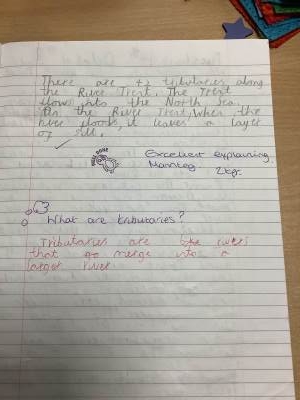 There are 42 tributaries along
the River Trent. The Trent
flows into the North Sea.
On the River Trent, when the
river floods, it leaves a layer
of silt.
WELL DONE
Excellent explaining,
What are tributaries?
Tributaries are the rivers
that go merge into a
larger river